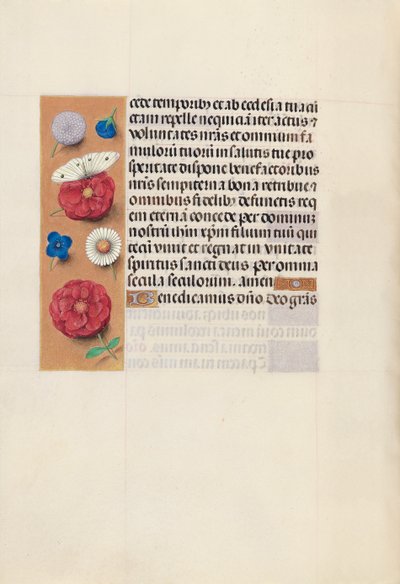 cede temporib⁹ et ab ecclesia tua cū
ctam repelle nequiciā iter actus ⁊
voluntates nrās et omnium fa
mulorū tuorū in salutis tue pro
speritate dispone benefactoribus
nrīs sempiterna bona retribue ⁊
omnibus fidelib⁹ defunctis req
iem eternā concede per dominū
nostrū ihm xpm filium tuū qui
tecū vivit et regnat in unitate
spiritus sancti deus per omnia
secula seculorum. Amen
Benedicamus dño. Deo gr̄as